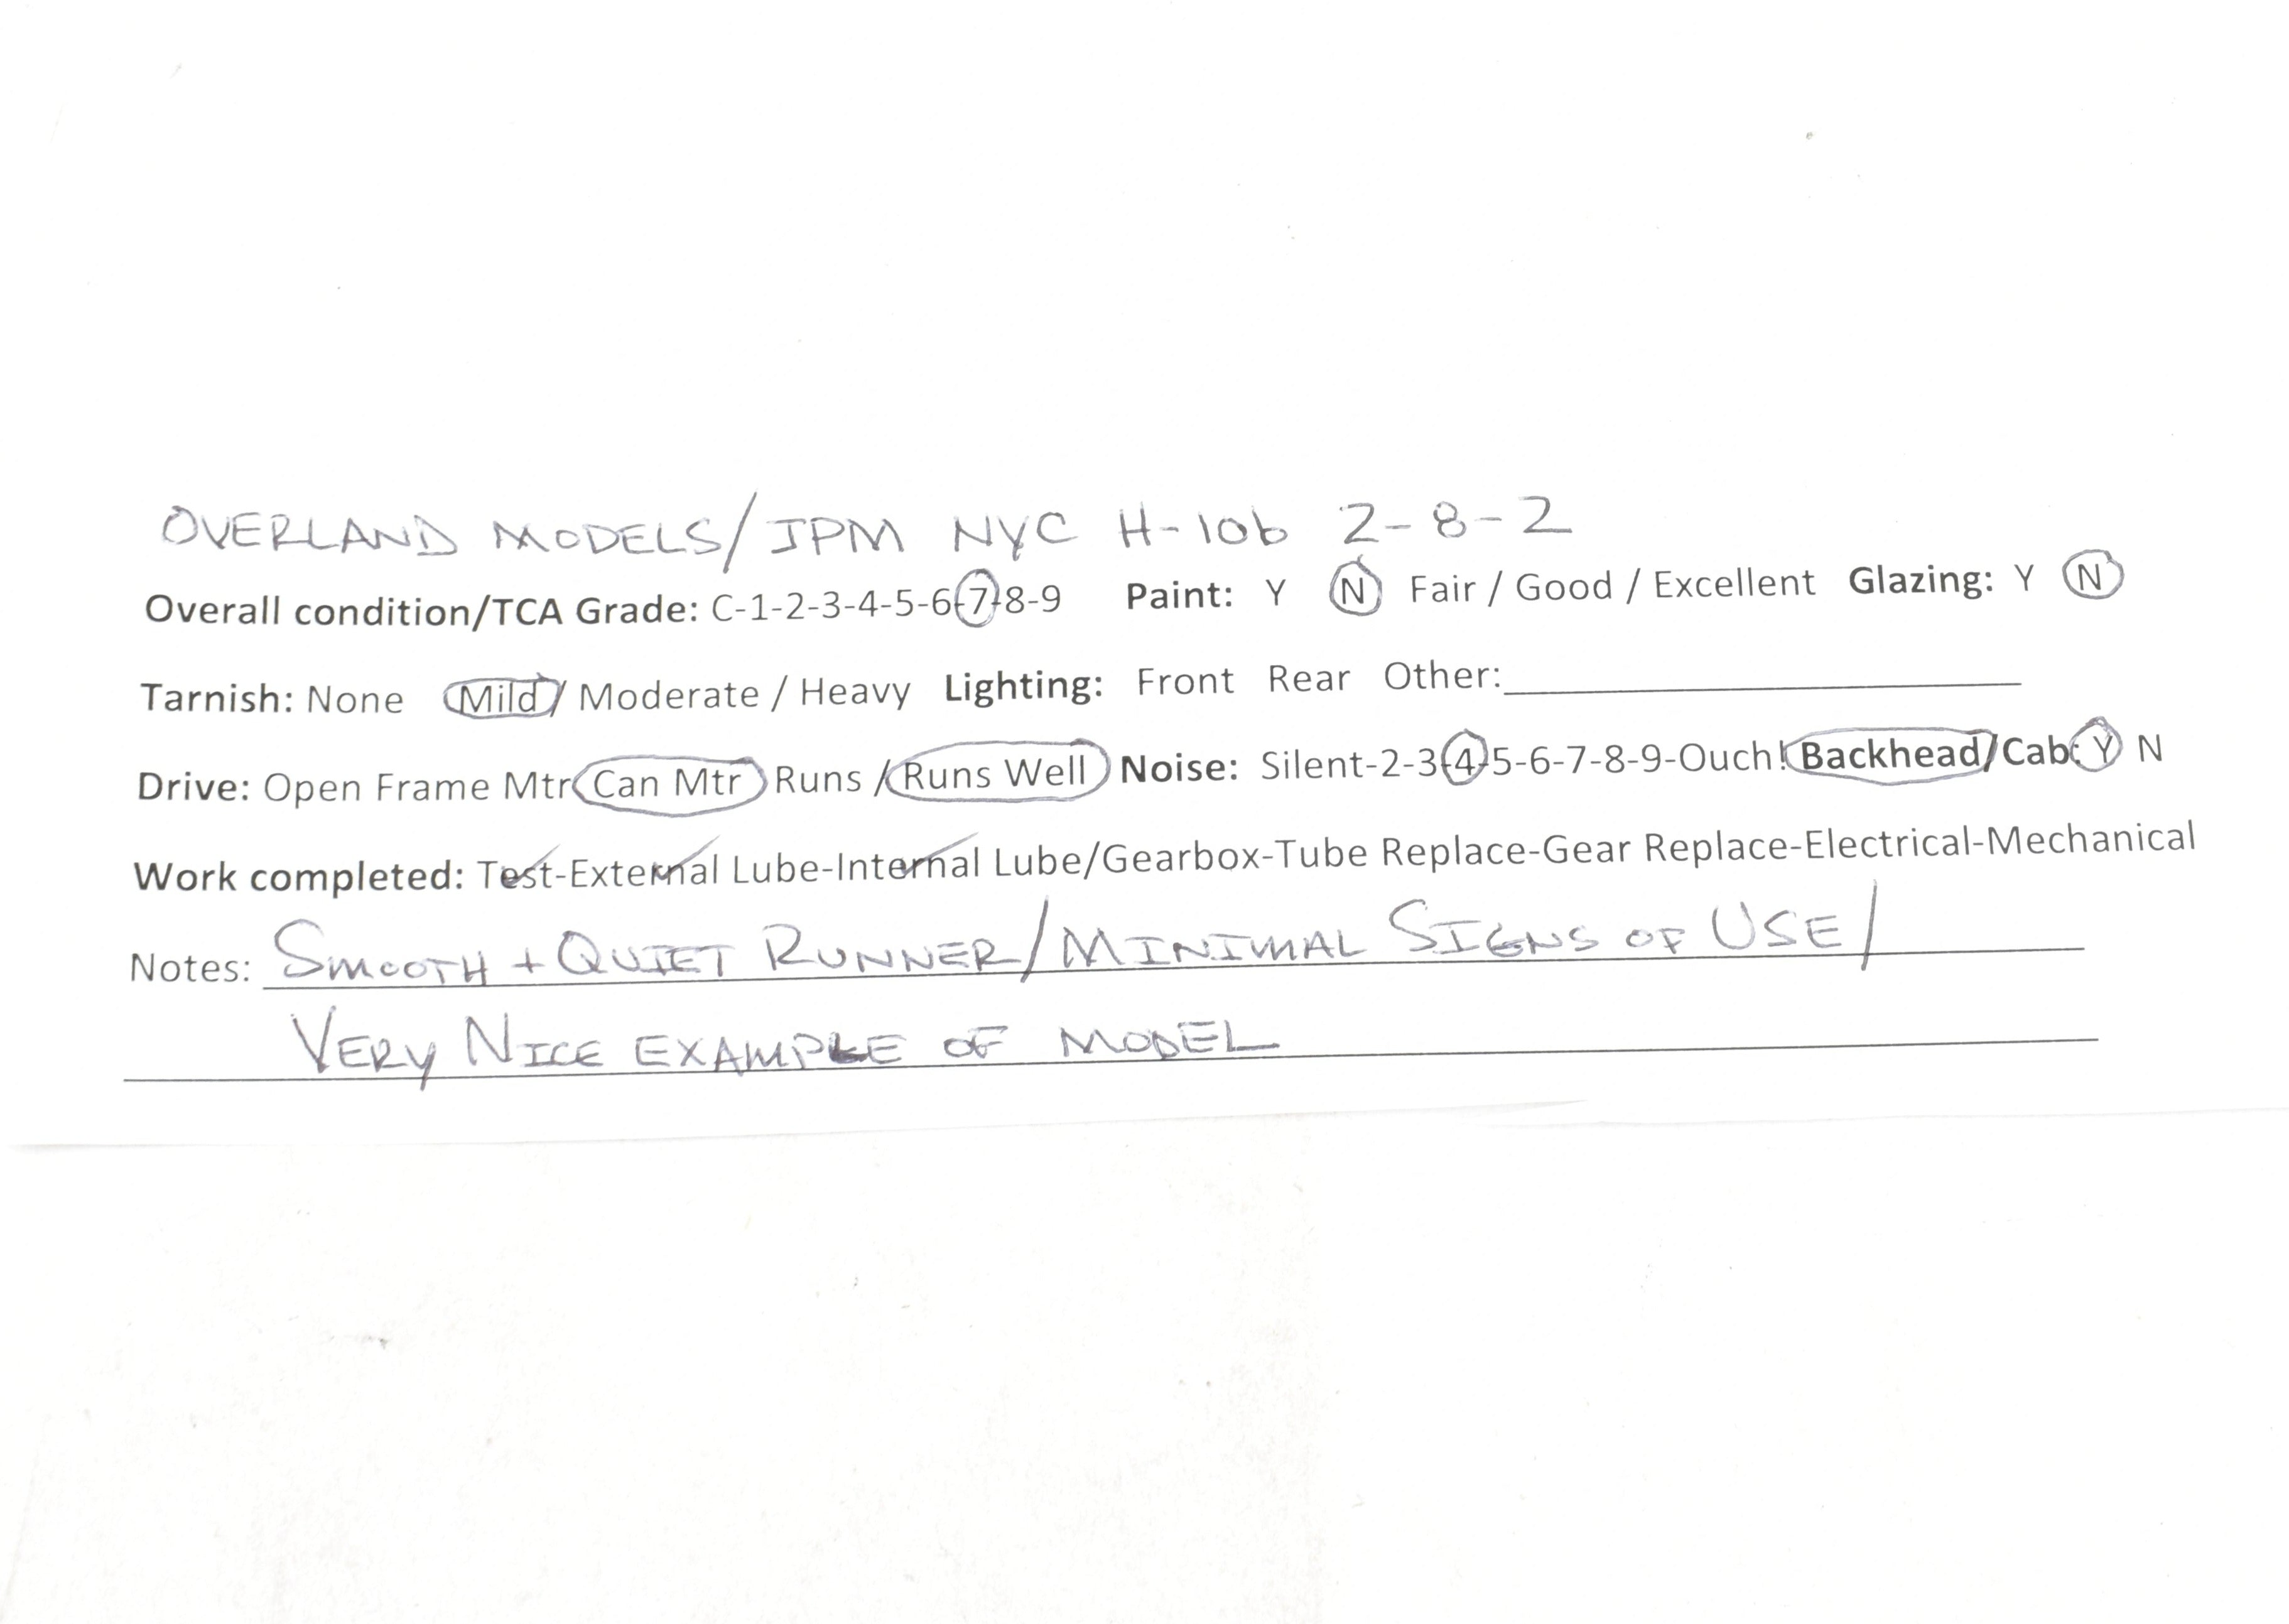 OVERLAND MODELS/JPM NYC H-10b 2-8-2
Overall condition/TCA Grade: C-1-2-3-4-5-6-7-8-9 Paint: Y N Fair / Good / Excellent Glazing: Y N
Tarnish: None Mild / Moderate / Heavy Lighting: Front Rear Other:
Drive: Open Frame Mtr Can Mtr Runs / Runs Well Noise: Silent-2-3-4-5-6-7-8-9-Ouch! Backhead/Cab: Y N
Work completed: Test-External Lube-Internal Lube/Gearbox-Tube Replace-Gear Replace-Electrical-Mechanical
Notes: SMOOTH + QUIET RUNNER/MINIMAL SIGNS OF USE/
VERY NICE EXAMPLE OF MODEL